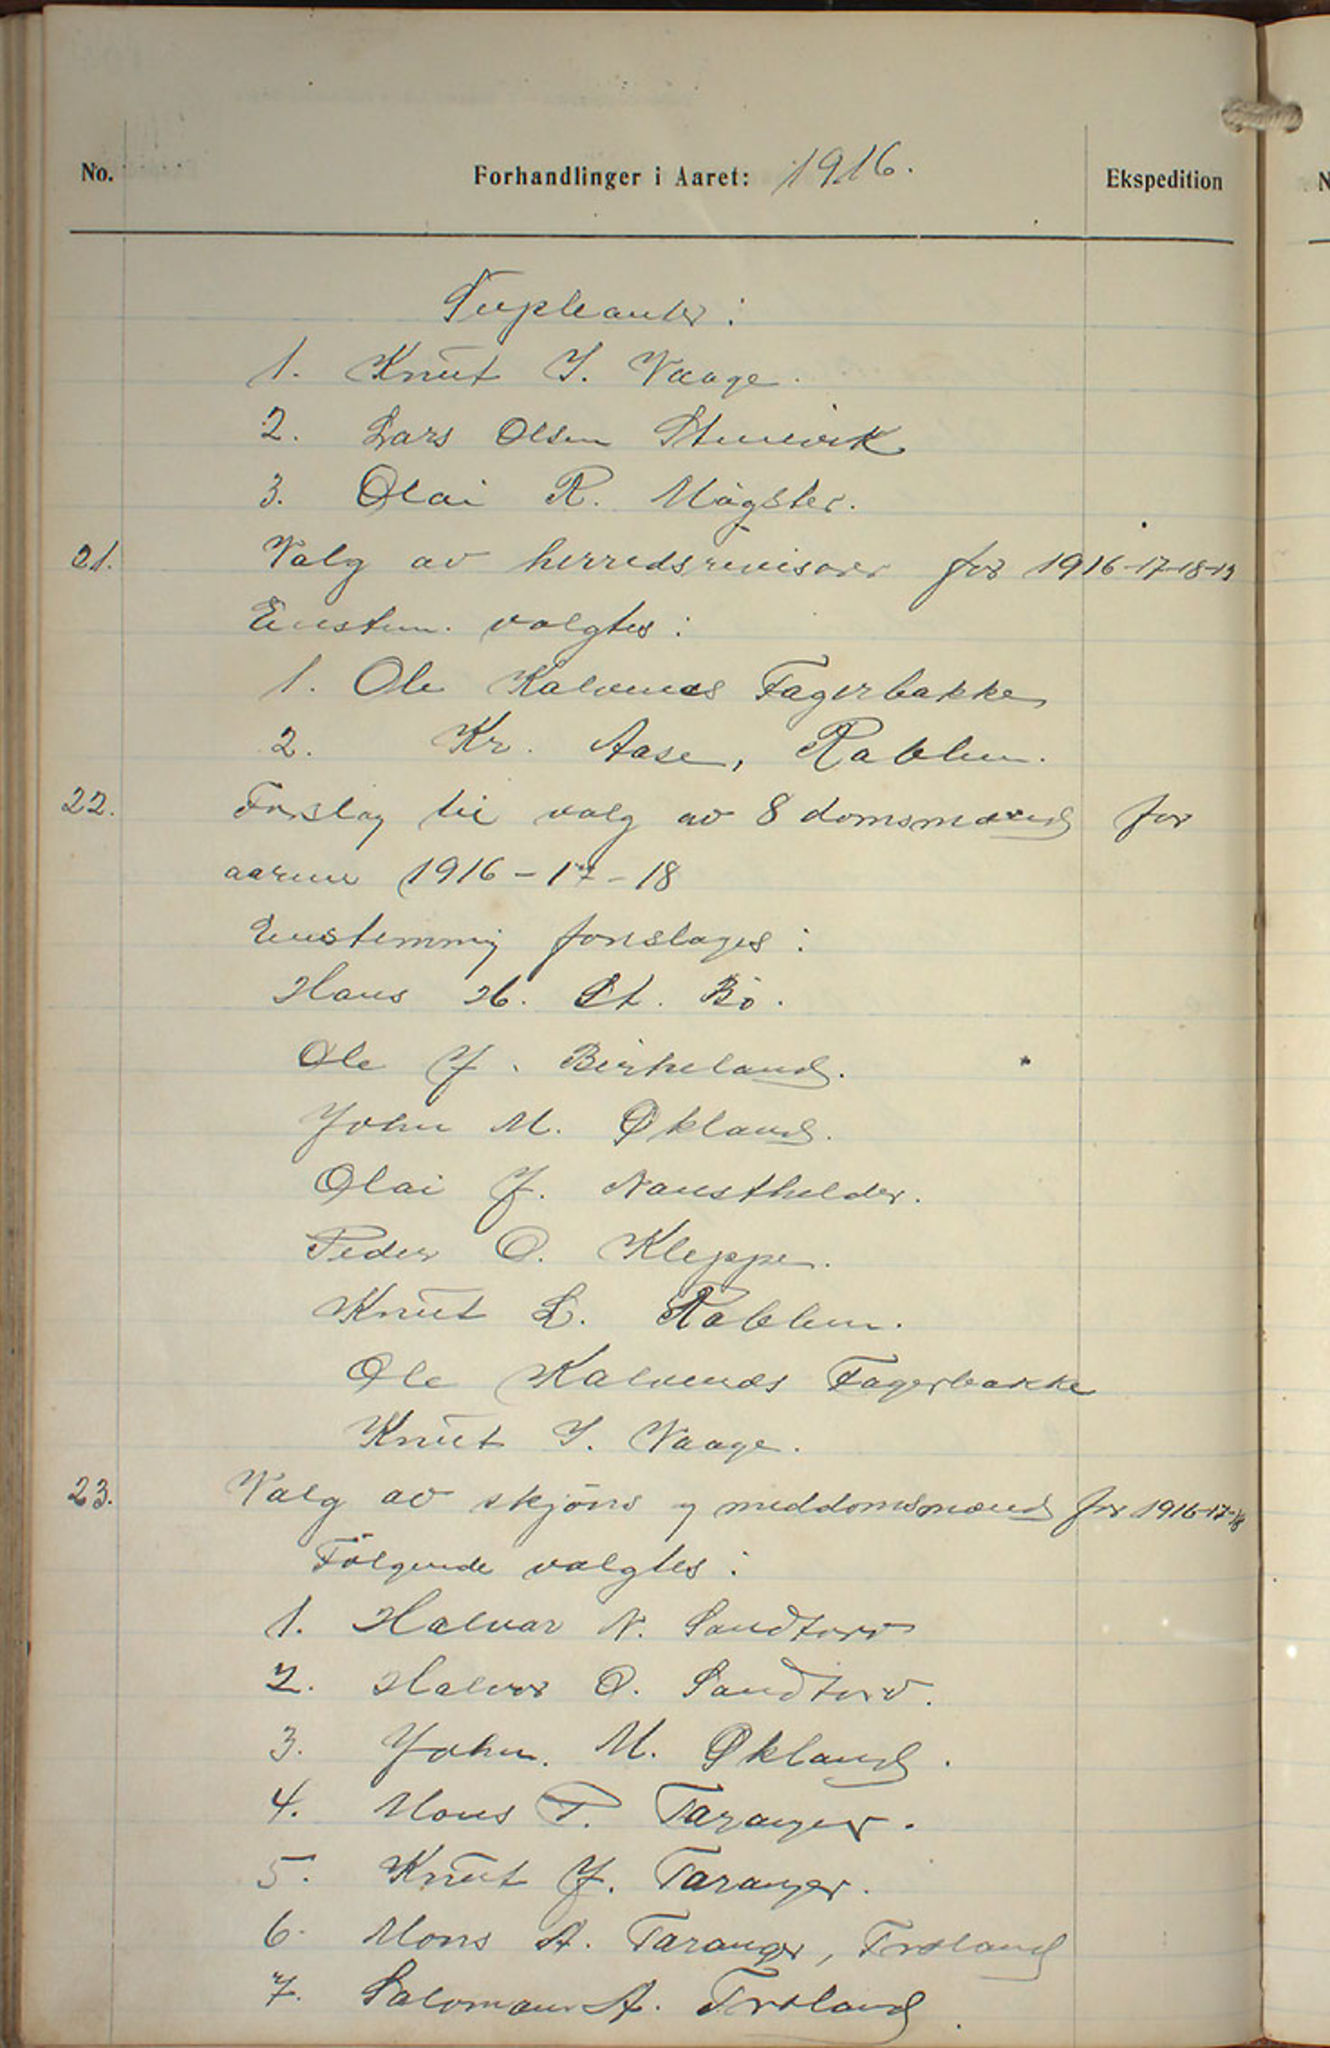 No. Forhandlinger i Aaret: 1916. Ekspedition
Supleanter:
1. Knut I. Vaage.
2. Lars Olsen Stenevik
3. Olai R. Møgster.
21. Valg av herredsrevisorer for 1916-17-18-19
Enstem. valgtes:
1. Ole Kalvenes Fagerbakke
2. Kr. Aase, Rabben.
22. Forslag til valg av 8 domsmænd for
aarene 1916-17-18
Enstemmig foreslages:
Hans H. St. Bö.
Ole J. Birkeland.
John M. Økland.
Olai J. Naustheller.
Peder O. Kleppe.
Knut L. Rabben.
Ole Kalvenæs Fagerbakke
Knut I. Vaage.
23. Valg av skjöns og meddomsmænd for 1916-17-18
Fölgende valgtes:
1. Halvar N. Sandtorv
2. Halvor O. Sandtorv.
3. John. M. Økland.
4. Mons P. Taranger.
5. Knut J. Taranger.
6. Mons A. Taranger, Froland
7. Salomon A. Froland.